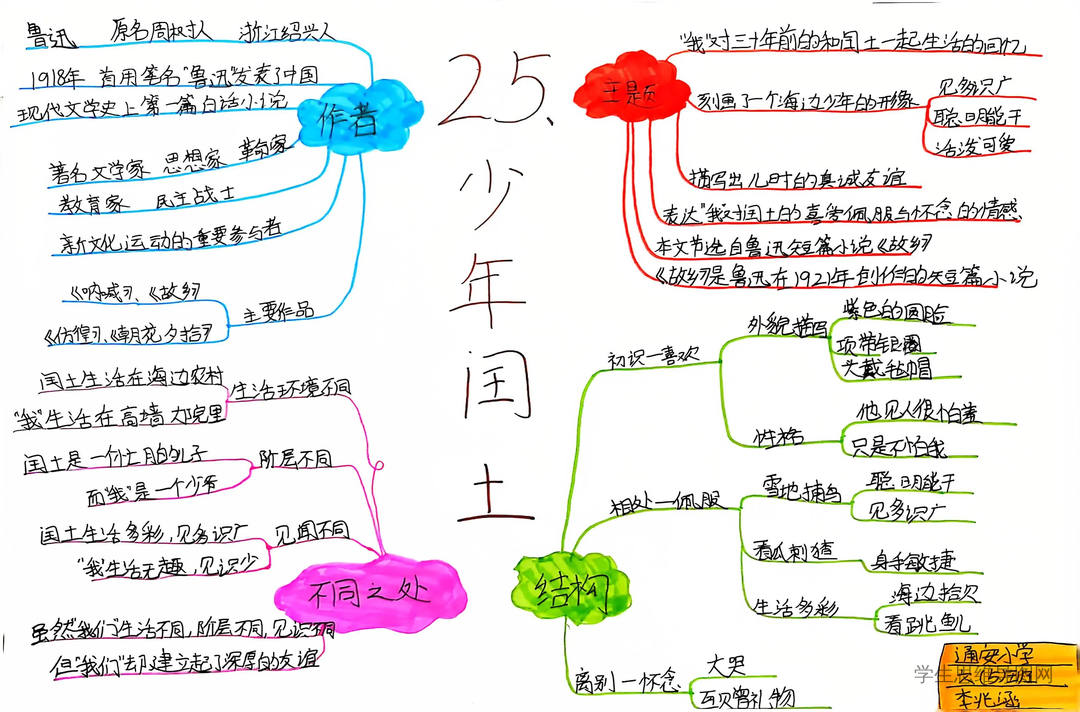 25、少年闰土
作者
鲁迅 原名周树人 浙江绍兴人
1918年 首用笔名"鲁迅"发表了中国
现代文学史上第一篇白话小说
著名文学家 思想家 革命家
教育家 民主战士
新文化运动的重要参与者
主要作品
《呐喊》、《故乡》
《彷徨》、《朝花夕拾》
主题
"我"对三十年前的和闰土一起生活的回忆
刻画了一个海边少年的形象
见多识广
聪明能干
活泼可爱
描写出儿时的真诚友谊
表达"我"对闰土的喜爱佩服与怀念的情感
本文节选自鲁迅短篇小说《故乡》
《故乡》是鲁迅在1921年创作的短篇小说
不同之处
生活环境不同
闰土生活在海边农村
"我"生活在高墙大院里
阶层不同
而"我"是一个少爷
见闻不同
闰土生活多彩,见多识广
"我"生活无趣,见识少
虽然我们生活不同,阶层不同,见识不同
但"我们"却建立起了深厚的友谊
结构
初识—喜欢
外貌描写
紫色的圆脸
项带银圈
头戴毡帽
性格
他见人很怕羞
只是不怕我
相处—佩服
雪地捕鸟
聪明能干
见多识广
看瓜刺猹
身手敏捷
生活多彩
海边拾贝
看跳鱼儿
离别—怀念
大哭
互赠礼物
通安小学
李兆涵